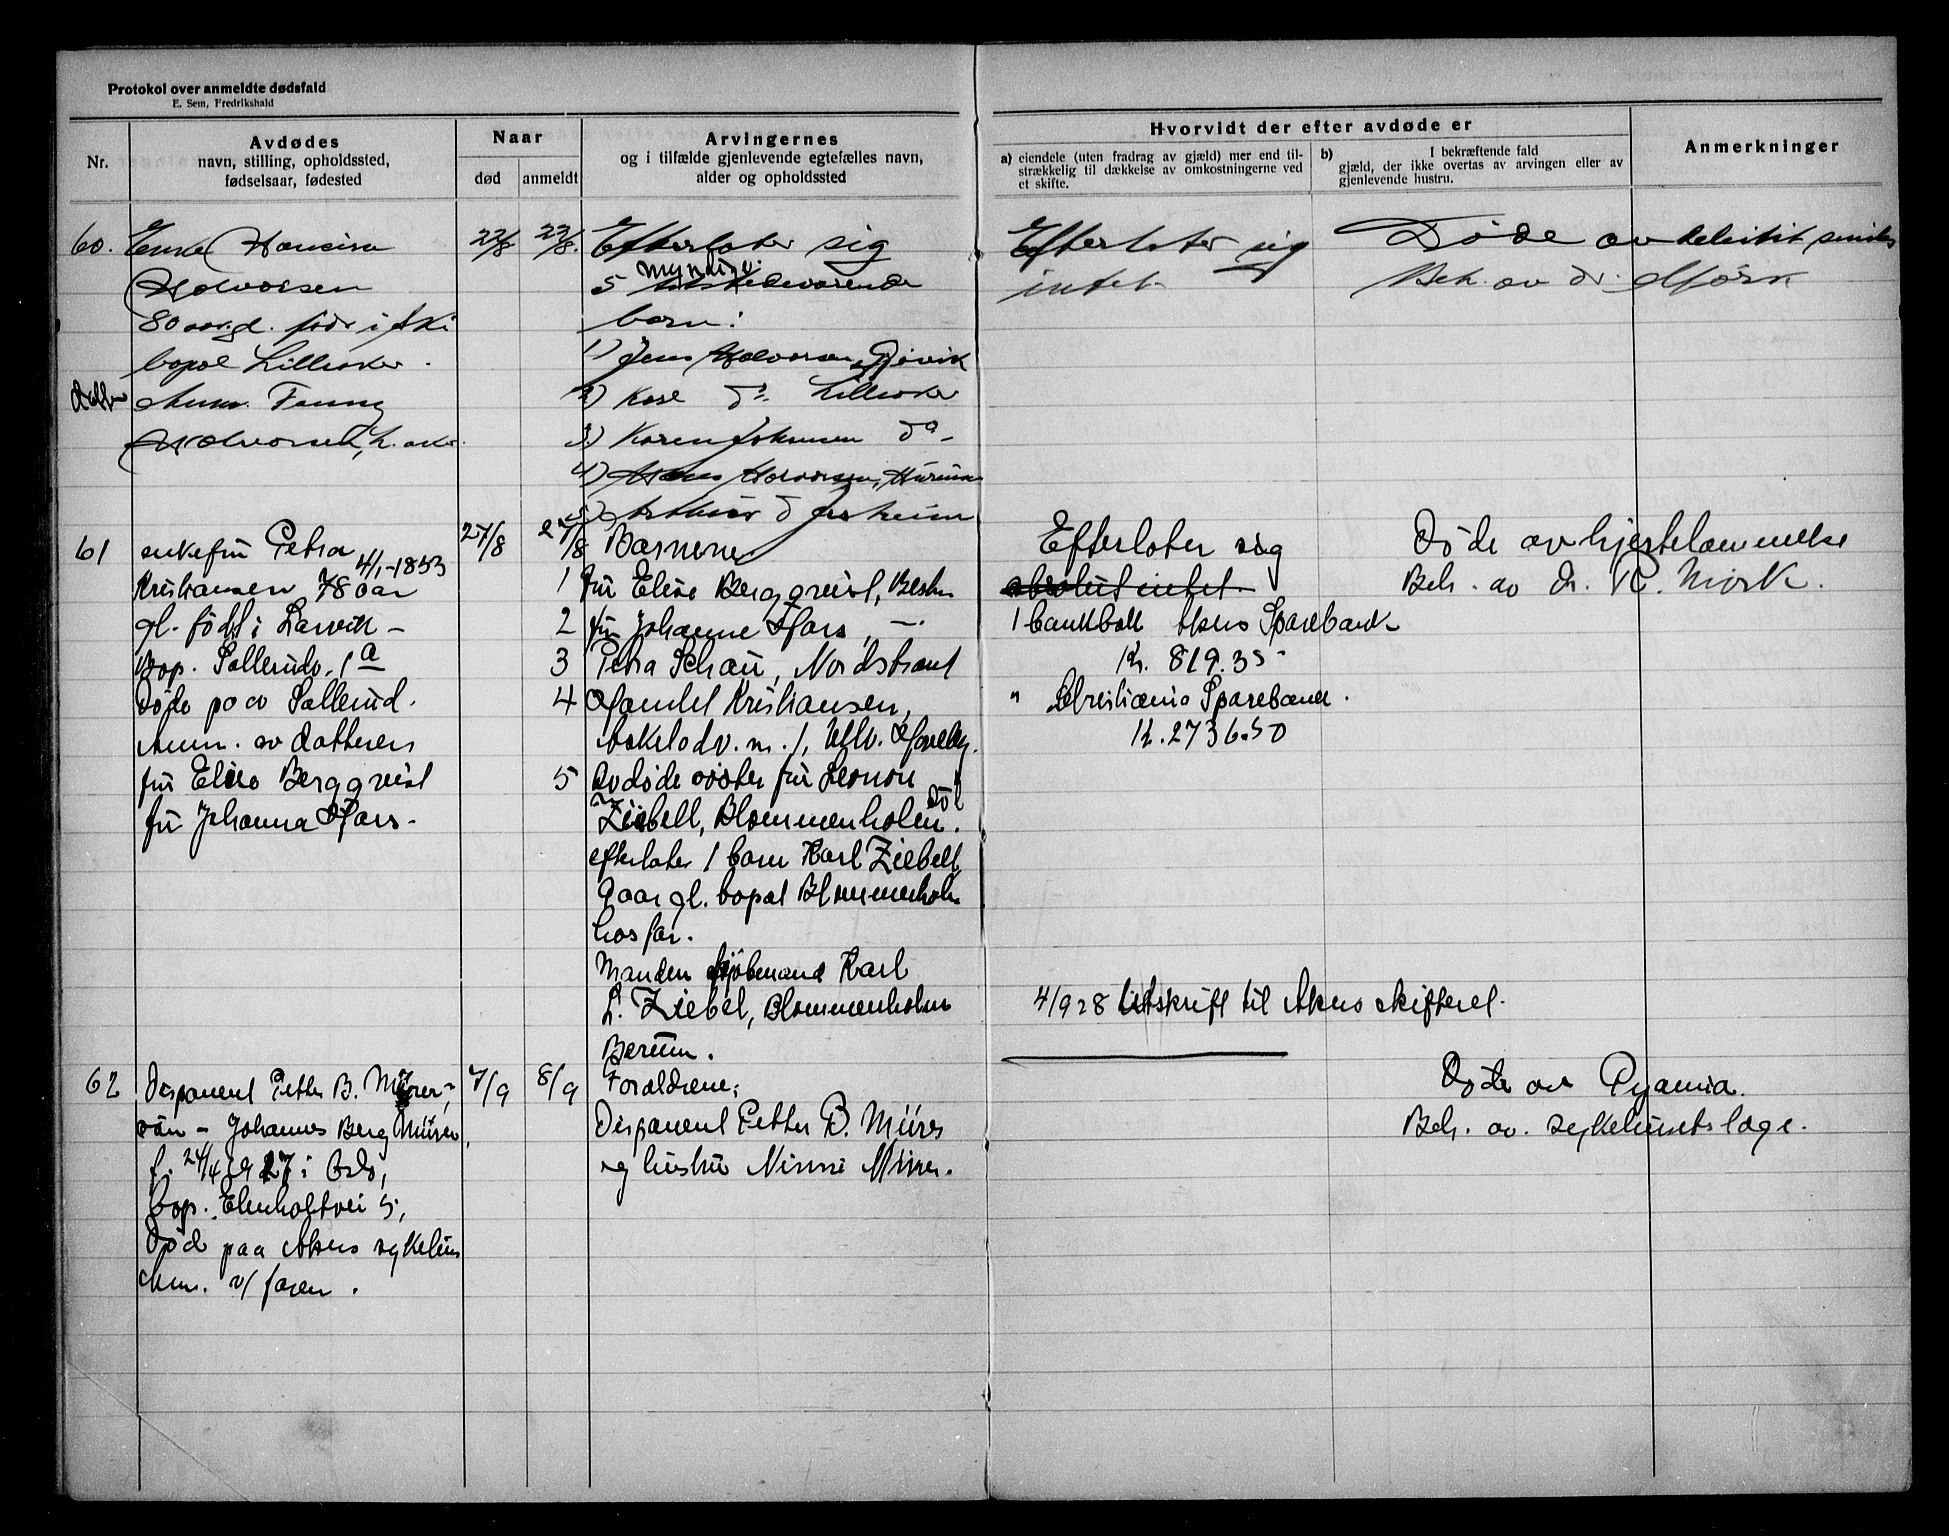 Protokol over anmeldte dødsfald
E. Sem, Fredrikshald
Nr.
Avdødes
navn, stilling, opholdssted,
fødselsaar, fødested
Naar
død
anmeldt
Arvingernes
og i tilfælde gjenlevende egtefælles navn,
alder og opholdssted
Hvorvidt der efter avdøde er
a) eiendele (uten fradrag av gjæld) mer end til-
strækkelig til dækkelse av omkostningerne ved
et skifte.
b) I bekræftende fald
gjæld, der ikke overtas av arvingen eller av
gjenlevende hustru.
Anmerkninger
60. Enke
Halvorsen
80 aar gl. født i Ski
bopæl Lilleaker
Anm. Fanny
Halvorsen, L. aker.
22/8
22/8.
Efterlater sig
5 myndige
barn:
1) Jens Halvorsen, Gjøvik
2) Karl do. Lilleaker
3) Karen Johansen do
4) Hans Halvorsen, Hurum
5) Arthur do Jessheim
Efterlater sig
intet.
Døde av
Beh. av dr. Mørk
61 enkefru Petra
4/1-1853
Kristiansen 78 aar
gl. født i Larvik -
Bop. Sollerudv. 1a
Døde paa Sollerud.
Anm. av datteren
fru Elise Bergqvist
fru Johanna Hars.
27/8
27/8
Barnene
1 fru Elise Bergqvist, Bestun
2 fru Johanne Hars, -
3 Petra Schau, Nordstrand
4 Kristiansen,
5 Avdøde søster fru Leonore
Ziebell, Blommenholm. død
efterlater 1 barn Karl Ziebell
9 aar gl. bopæl Blommenholm
hos far.
Manden kjøbmand Karl
L. Ziebel, Blommenholm
Bærum.
Efterlater sig
absolut intet.
1 bankbok Akers Sparebank
Kr. 819.35
" Kristiania Sparebank.
Kr. 2736.50
4/9 28 Utskrift til Akers skifteret.
Døde av hjertelammelse
Beh. av Dr. R. Mørk.
62 Disponent Petter B. Mürer,
søn - Johannes Berg Mürer,
f. 24/4 1927 i Oslo,
bop. 5,
Død paa Akers sykehus
Anm. v/ faren.
7/9
8/9
Forældrene:
Disponent Petter B. Mürer
og hustru Ninni Mürer.
Døde av Pyæmia.
Beh. av. sykehusets læge.